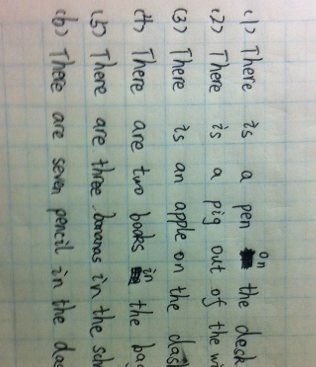 (1) There is a pen on the desk
(2) There is a pig out of the
(3) There is an apple on the
(4) There are two books in the
(5) There are three bananas in the
(6) There are seven pencil in the